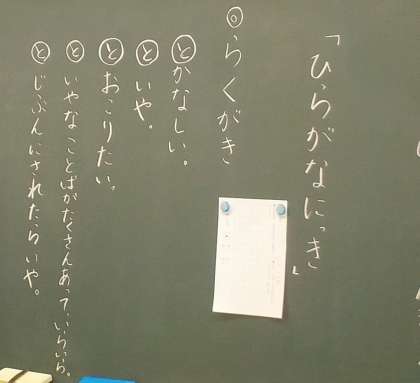 「ひらがなにっき」
◎らくがき
㋣かなしい。
㋣いや。
㋣おこりたい。
㋣いやなことばがたくさんあって、いらいら。
㋣じぶんにされたらいや。